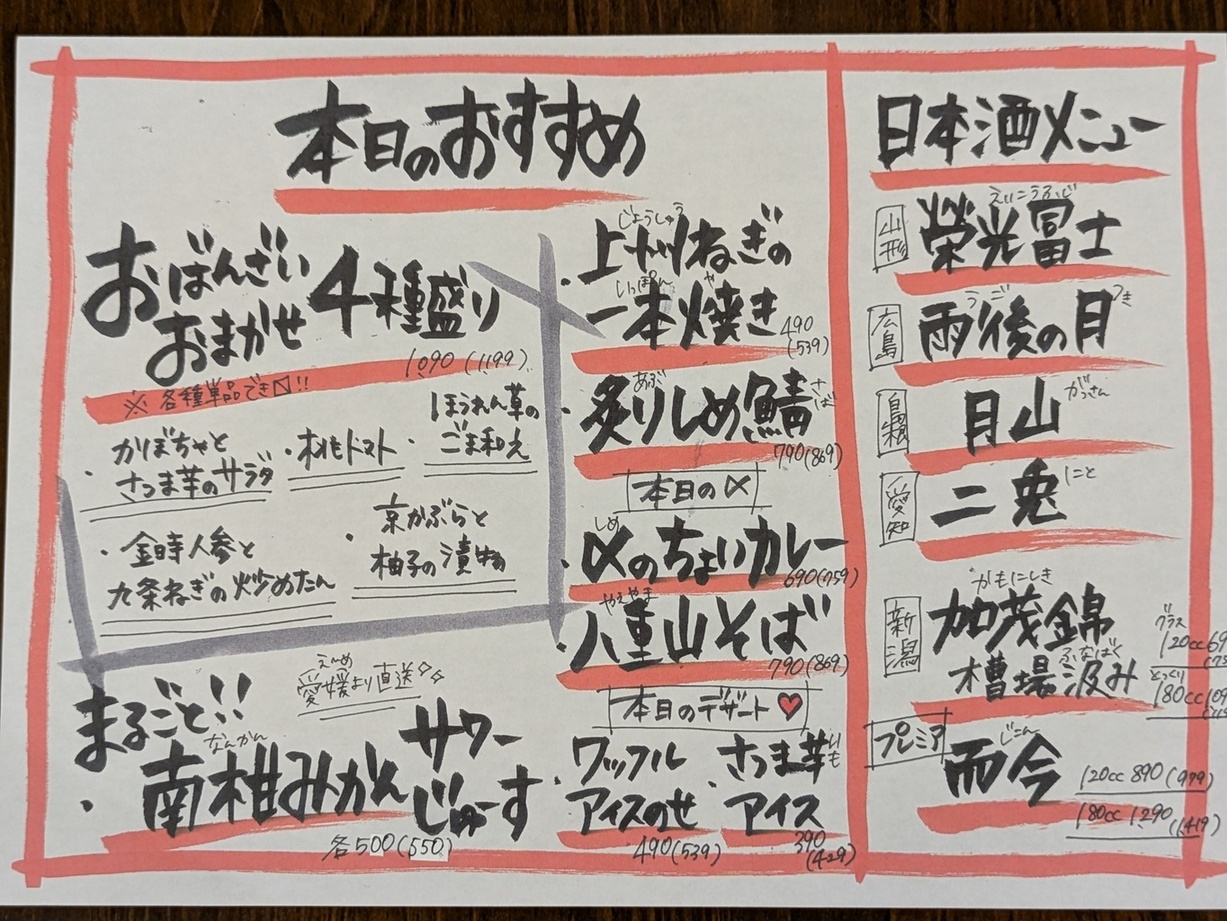 本日のおすすめ
おばんざい
おまかせ
4種盛り
1090(1199)
※各種単品でき〼!!
・かぼちゃと
さつま芋のサラダ
・桃トマト
・ほうれん草の
ごま和え
・金時人参と
九条ねぎの炒めたん
・京かぶらと
柚子の漬物
まるごと!!
えひめ
愛媛より直送
なんかん
・南柑みかん
サワー
じゅーす
各500(550)
じょうしゅう
・上州ねぎの
いっぽん や
一本焼き
490
(539)
あぶ さば
・炙りしめ鯖
790(869)
本日の〆
しめ
・〆のちょいカレー
690(759)
やえやま
・八重山そば
790(869)
本日のデザート
・ワッフル
アイスのせ
490(539)
・さつま芋
いも
アイス
390
(429)
日本酒メニュー
えいこうふじ
山形 榮光冨士
うご つき
広島 雨後の月
島根 月山 がっさん
愛知 二兎 にと
かもにしき
新潟 加茂錦
ふなばく
槽場汲み
グラス
120cc
とっくり
180cc
プレミア
じこん
而今
120cc 890(979)
180cc 1290(1419)